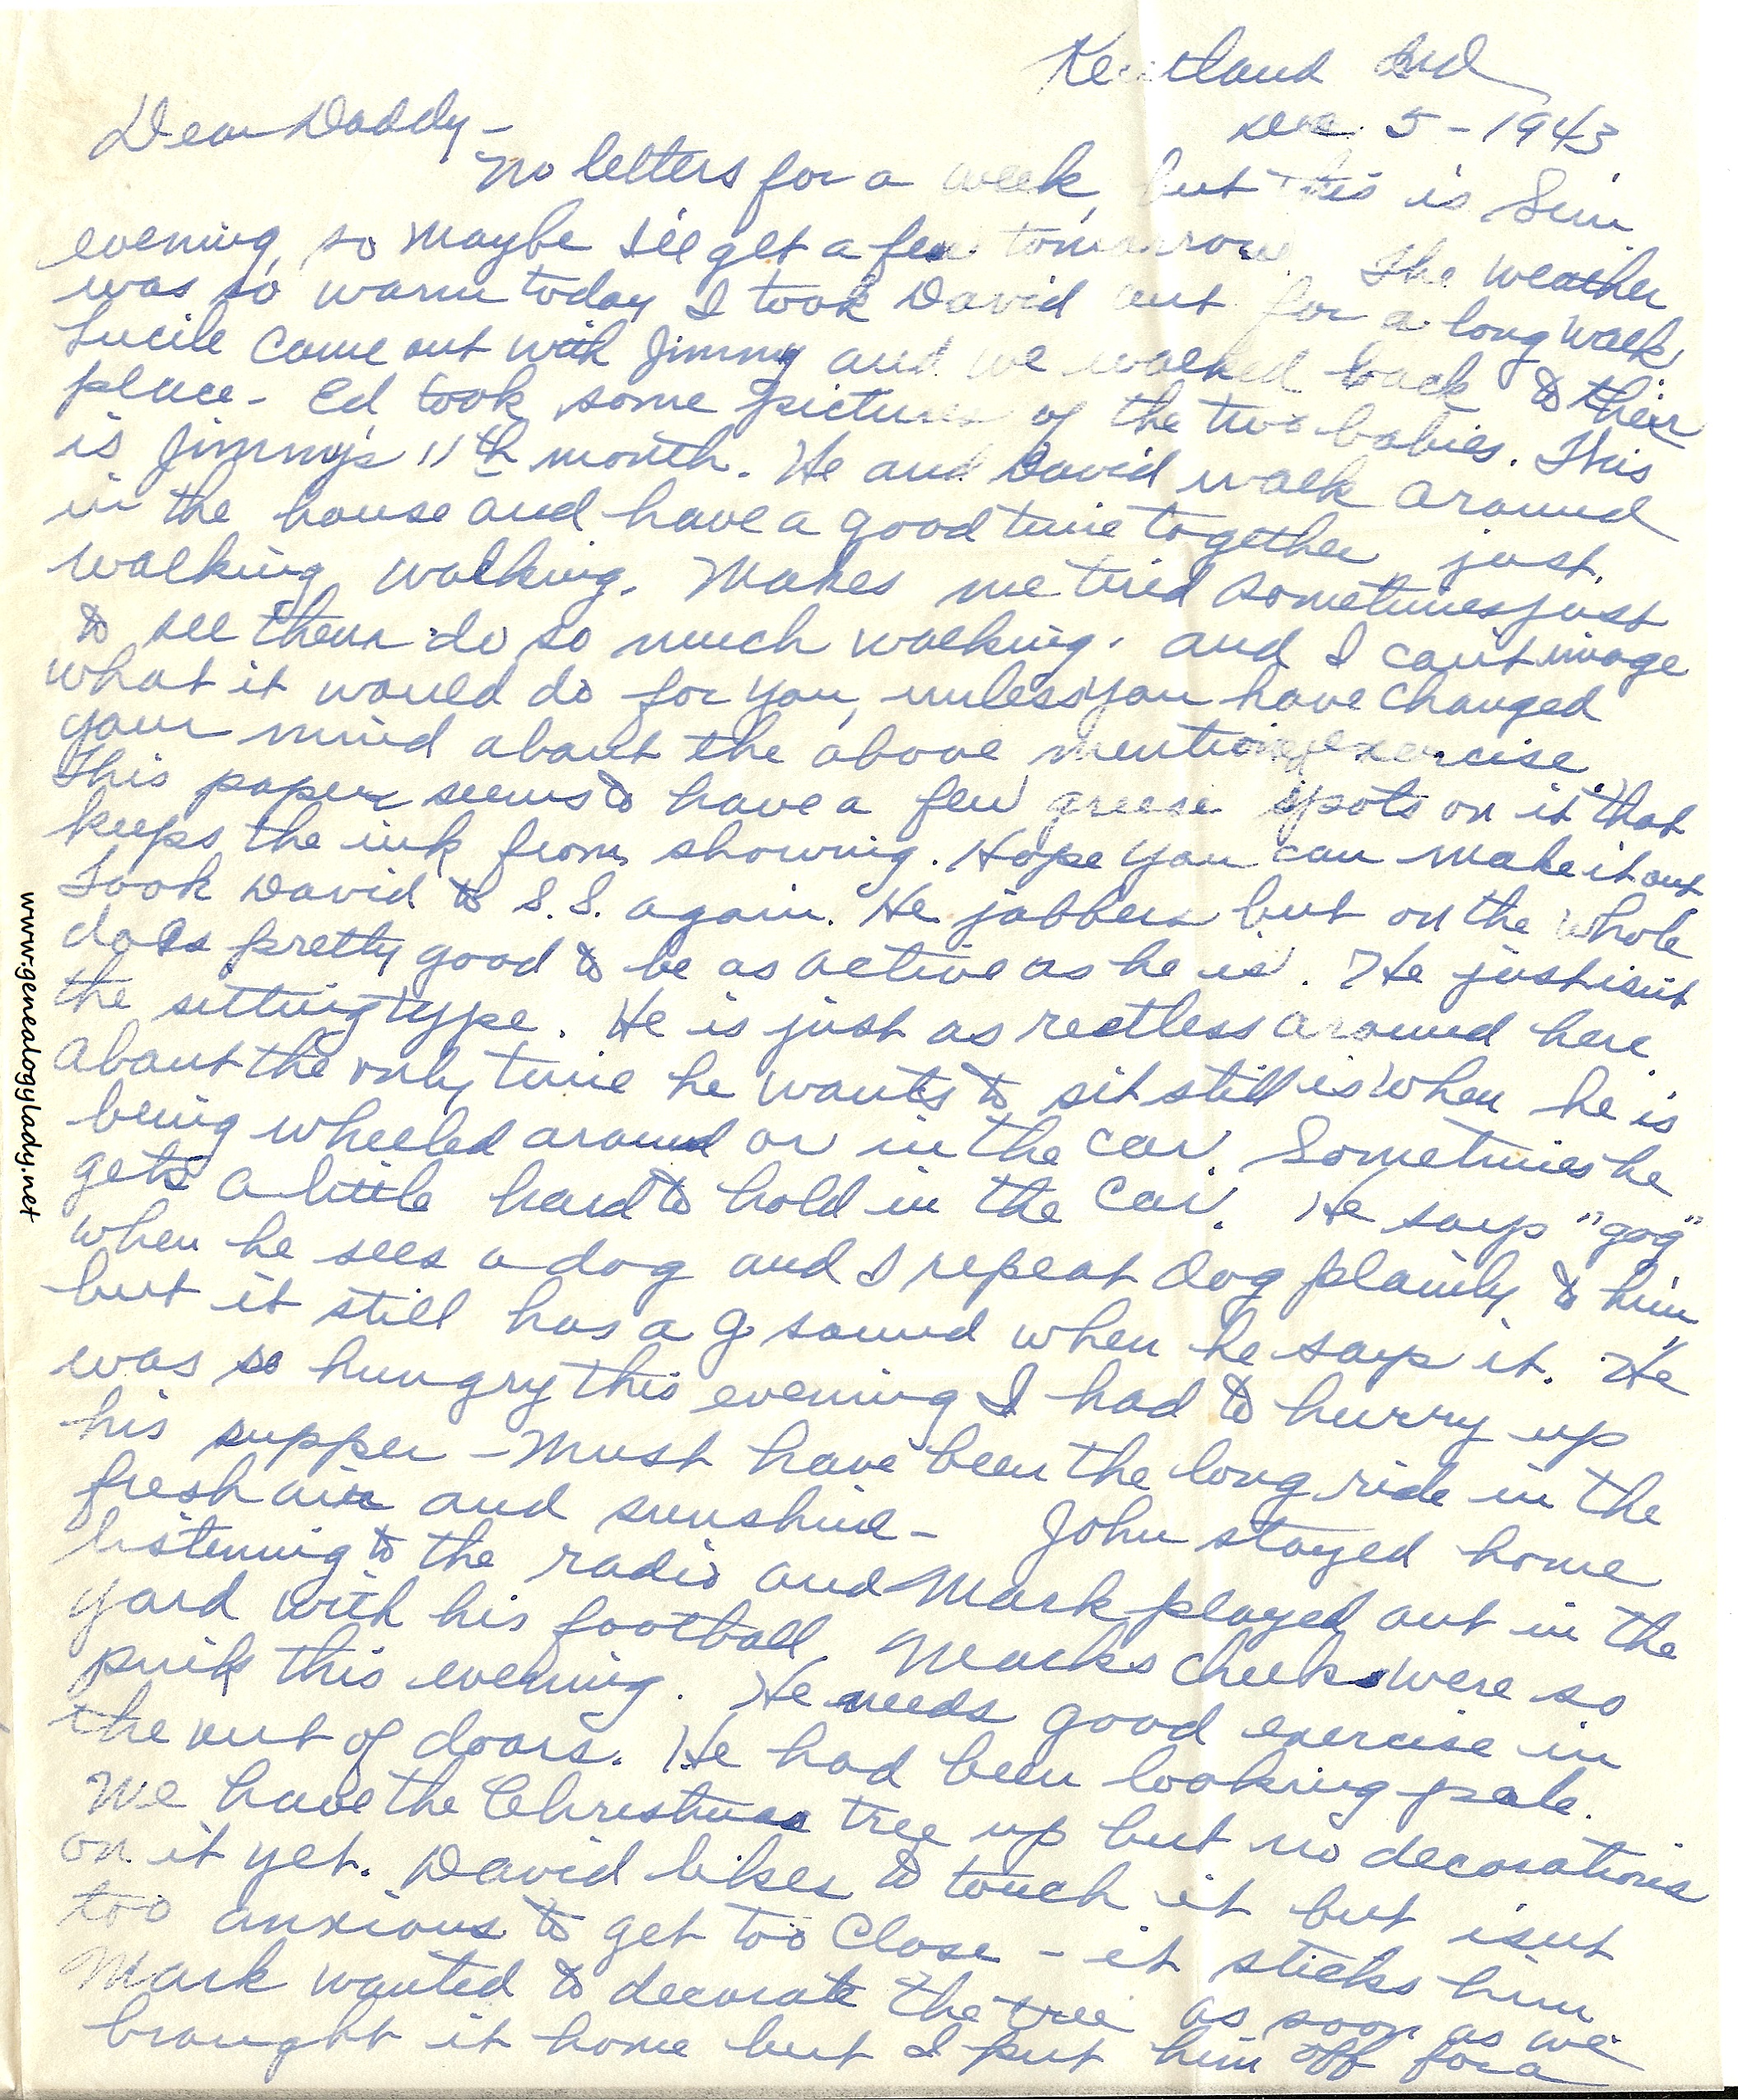 Kentland Ind
Dec 5 - 1943
Dear Daddy -
No letters for a week, but this is Sun.
evening, so maybe I'll get a few tomorrow. The weather
was so warm today I took David out for a long walk
Lucile came out with Jimmy and we walked back to their
place - Ed took some pictures of the two babies. This
is Jimmy's 11th month. He and David walk around
in the house and have a good time together just
walking, walking. Makes me tired sometimes just
to see them do so much walking. and I can't image
what it would do for you, unless you have changed
your mind about the above mentioned exercise.
This paper seems to have a few grease spots on it that
keeps the ink from showing. Hope you can make it out
Took David to S.S. again. He jabbers but on the whole
does pretty good to be as active as he is. He just isn't
the sitting type. He is just as restless around here.
about the only time he wants to sit still is when he is
being wheeled around or in the car. Sometimes he
gets a little hard to hold in the car. He says "gog"
when he sees a dog and I repeat dog plainly to him
but it still has a g sound when he says it. He
was so hungry this evening I had to hurry up
his supper - Must have been the long ride in the
fresh air and sunshine - John stayed home
listening to the radio and Mark played out in the
yard with his football. Marks cheeks were so
pink this evening. He needs good exercise in
the out of doors. He had been looking pale.
We have the Christmas tree up but no decorations
on it yet. David likes to touch it but isnt
too anxious to get too close - it sticks him
Mark wanted to decorate the tree as soon as we
brought it home but I put him off for a
www.genealogylady.net